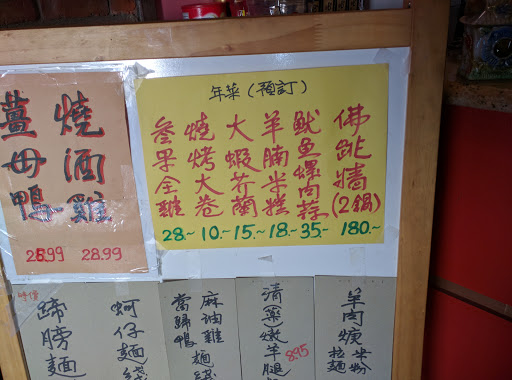 年菜(預訂)
佛跳牆(2鍋)
180.~
魷魚螺肉蒜
35.~
羊腩米糕
18.~
大蝦芥蘭
15.~
燒烤大卷
10.~
全雞
28.~
燒酒雞
28.99
薑母鴨
羊肉
拉麵
米粉
清
嫩羊腿
8.95
麻油雞麵線
當歸鴨
蚵仔麵線
特價
蹄膀麵